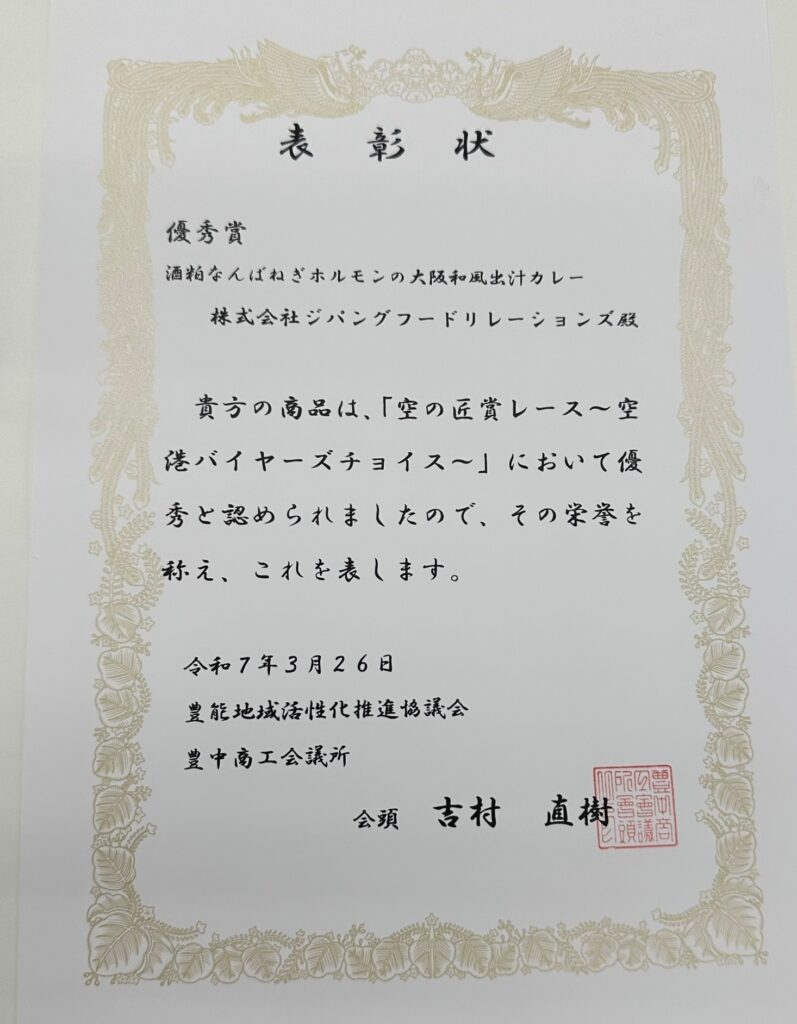 表彰状
優秀賞
酒粕なんばねぎホルモンの大阪和風出汁カレー
株式会社ジパングフードリレーションズ殿
貴方の商品は、「空の匠賞レース～空
港バイヤーズチョイス～」において優
秀と認められましたので、その栄誉を
称え、これを表します。
令和7年3月26日
豊能地域活性化推進協議会
豊中商工会議所
会頭 吉村 直樹